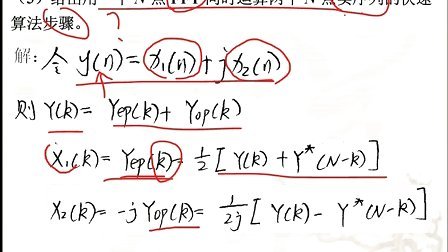 (3) 给出用一个 N 点 FFT 同时运算两个 N 点实序列的快速
算法步骤。 ?
解: 令 y(n) = x₁(n) + j x₂(n)
则 Y(k) = Yep(k) + Yop(k)
X₁(k) = Yep(k) = 1/2 [ Y(k) + Y*(N-k) ]
X₂(k) = -j Yop(k) = 1/2j [ Y(k) - Y*(N-k) ]